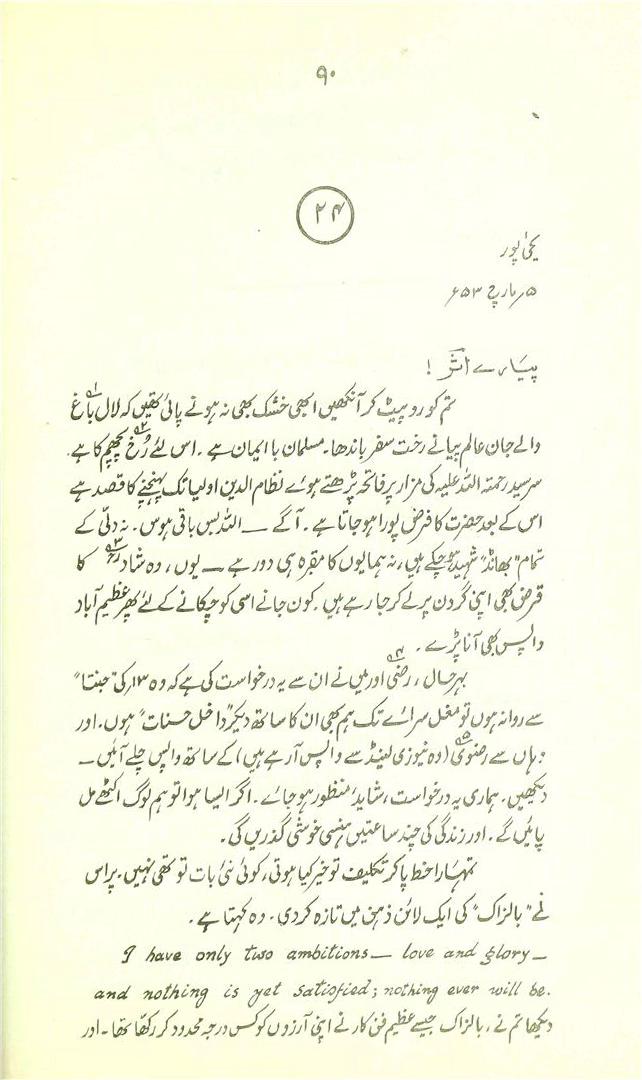 ۹۰
۲۴
یحیٰ پور
۵؍ مارچ ۵۳ء
پیارے اثر !
تم کو رو پیٹ کر آنکھیں ابھی خشک بھی نہ ہونے پائی تھیں کہ لال باغ۱
والے جان عالم پیا نے رخت سفر باندھا۔ مسلمان با ایمان ہے۔ اس لئے رُخ پچھم کا ہے۔
سرسید رحمتہ اللہ علیہ کی مزار پر فاتحہ پڑھتے ہوئے نظام الدین اولیا تک پہنچنے کا قصد ہے
اس کے بعد حضرت کا فرض پورا ہو جاتا ہے۔ آگے — اللہ بس باقی ہوس۔ نہ دلّی کے
تمام "بھانڈ" شہید ہو چکے ہیں، نہ ہمایوں کا مقبرہ ہی دور ہے — یوں، وہ شاد۳ کا
قرض بھی اپنی گردن پر لے کر جا رہے ہیں۔ کون جانے اسی کو چکانے کے لئے پھر عظیم آباد
واپس بھی آنا پڑے۔
بہرحال، رضی۴ اور میں نے ان سے یہ درخواست کی ہے کہ وہ ۱۳؍ کی جنتا"
سے روانہ ہوں تو مغل سرائے تک ہم بھی ان کا ساتھ دیکر "داخل حسنات" ہوں۔ اور
وہاں سے رضوی۵ (وہ نیوزی لینڈ سے واپس آ رہے ہیں) کے ساتھ واپس چلے آئیں —
دیکھیں۔ ہماری یہ درخواست، شاید منظور ہو جائے۔ اگر ایسا ہوا تو ہم لوگ اکٹھے مل
پائیں گے۔ اور زندگی کی چند ساعتیں ہنسی خوشی گذریں گی۔
تمہارا خط پا کر تکلیف تو خیر کیا ہوتی، کوئی نئی بات تو تھی نہیں۔ پر اس
نے "بالزاک" کی ایک لائن ذہن میں تازہ کر دی۔ وہ کہتا ہے۔
I have only two ambitions — love and glory —
and nothing is yet satisfied; nothing ever will be.
دیکھا تم نے، بالزاک جیسے عظیم فن کار نے اپنی آرزوں کو کس درجہ محدود کر رکھا تھا۔ اور